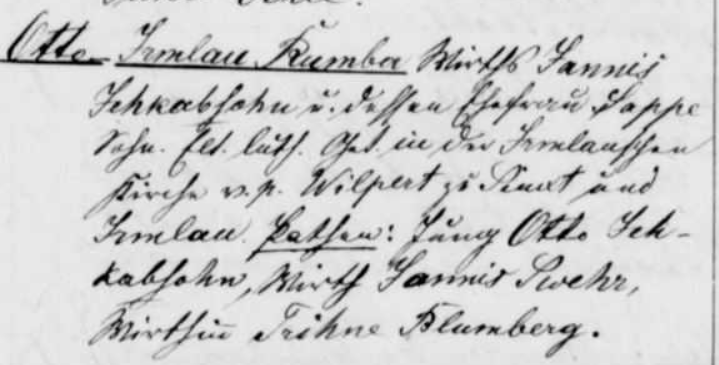 Otto Irmlau Rumba Wirths Jannis
Jehkabsohn u. dessen Ehefrau Lappe
Sohn. Elt. luth. Get. in der Irmlauschen
Kirche v. p. Wilpert zu Siuxt und
Irmlau. Pathen: Jung Otto Jeh-
kabsohn, Wirth Jannis Swehr,
Wirthin Trihne Blumberg.